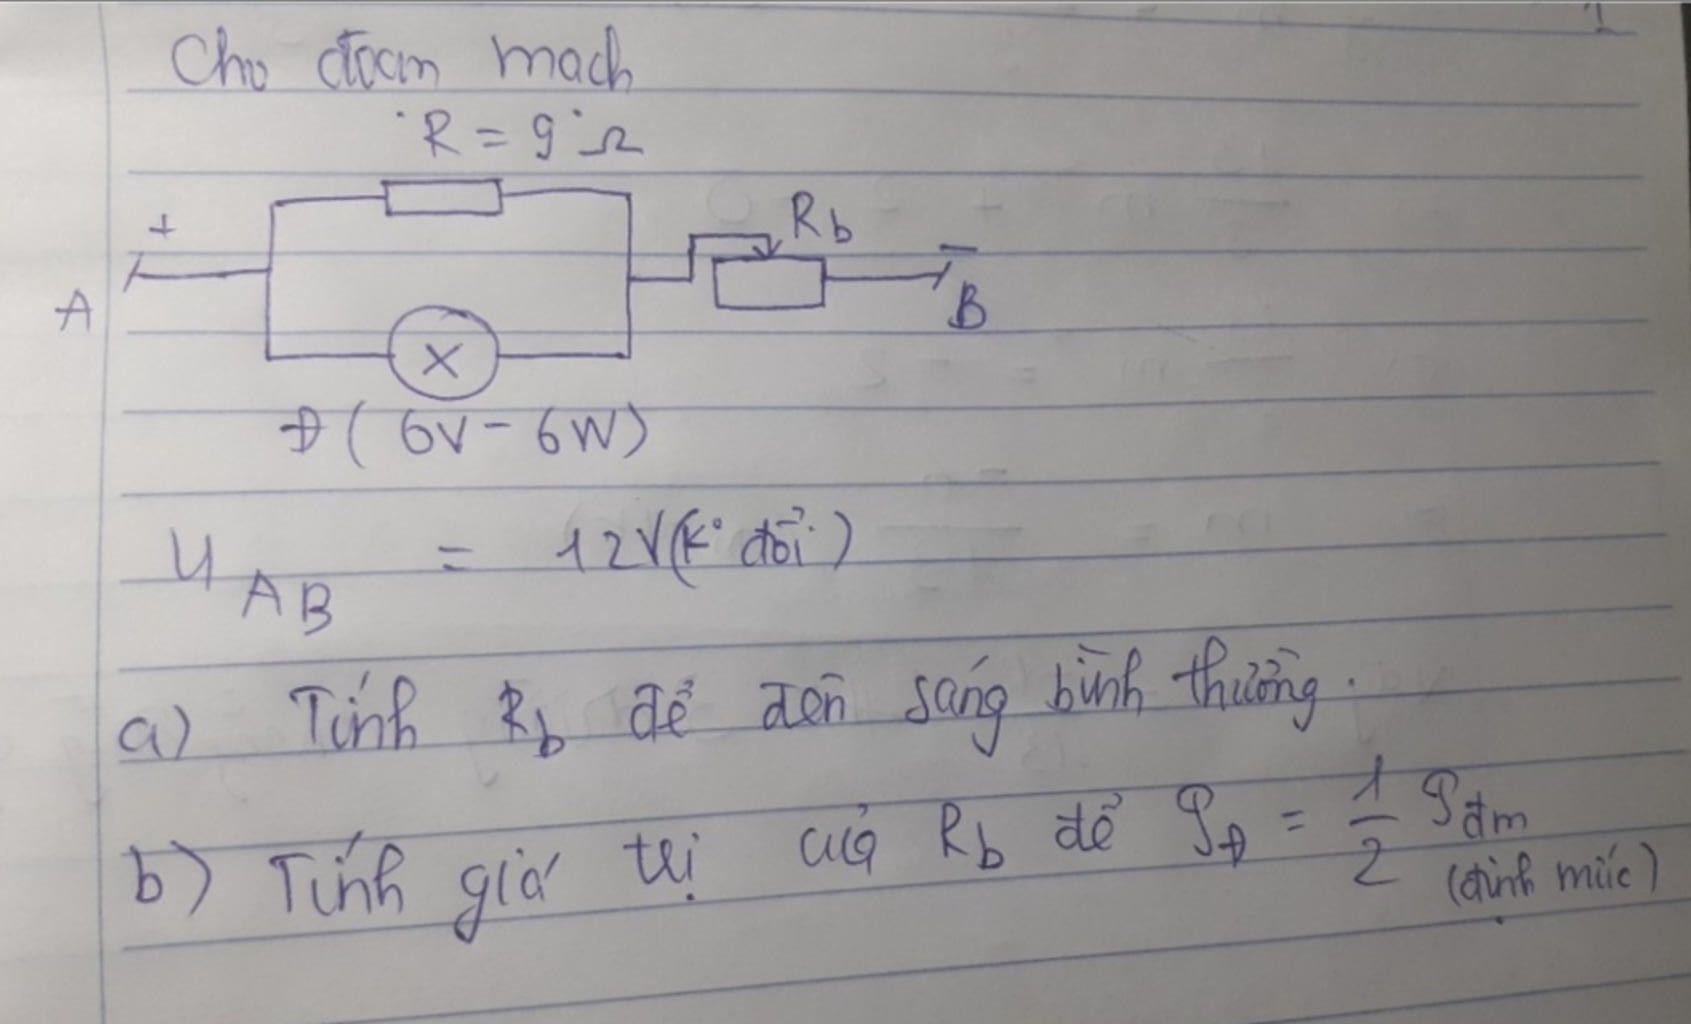 Cho đoạn mạch
R = 9 Ω
+
Rb
-
A
B
Đ ( 6V - 6W )
U AB = 12V (K° đổi)
a) Tính Rb để đèn sáng bình thường.
b) Tính giá trị của Rb để 𝒫Đ = 1/2 𝒫đm
(định mức)